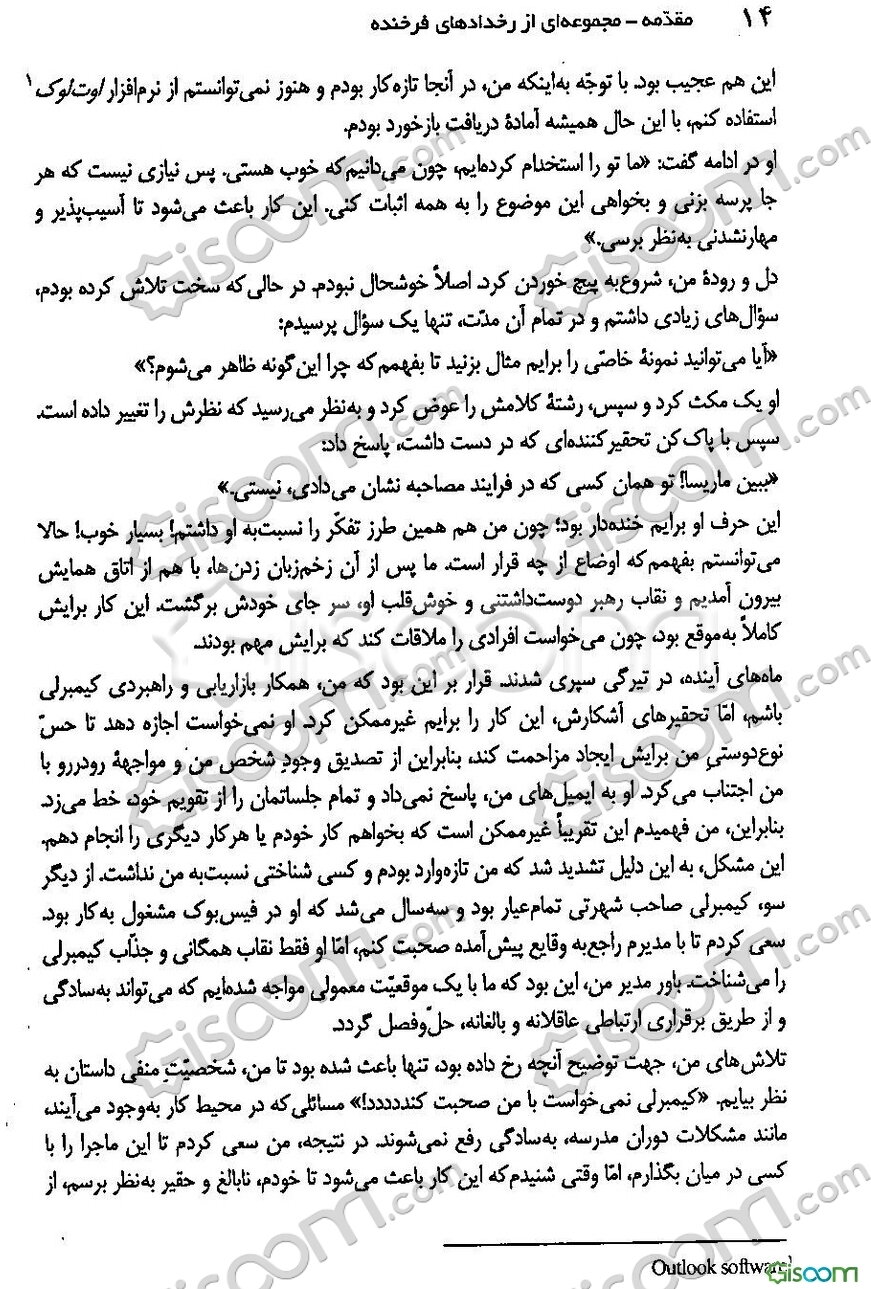 ۱۴ مقدّمه – مجموعه‌ای از رخدادهای فرخنده
این هم عجیب بود. با توجّه به‌اینکه من، در آنجا تازه‌کار بودم و هنوز نمی‌توانستم از نرم‌افزار اوت‌لوک۱
استفاده کنم، با این حال همیشه آمادهٔ دریافت بازخورد بودم.
او در ادامه گفت: «ما تو را استخدام کرده‌ایم، چون می‌دانیم‌که خوب هستی. پس نیازی نیست که هر
جا پرسه بزنی و بخواهی این موضوع را به همه اثبات کنی. این کار باعث می‌شود تا آسیب‌پذیر و
مهارنشدنی به‌نظر برسی.»
دل و رودهٔ من، شروع‌به پیچ خوردن کرد. اصلاً خوشحال نبودم. در حالی‌که سخت تلاش کرده بودم،
سؤال‌های زیادی داشتم و در تمام آن مدّت، تنها یک سؤال پرسیدم:
«آیا می‌توانید نمونهٔ خاصّی را برایم مثال بزنید تا بفهمم‌که چرا این‌گونه ظاهر می‌شوم؟»
او یک مکث کرد و سپس، رشتهٔ کلامش را عوض کرد و به‌نظر می‌رسید که نظرش را تغییر داده است.
سپس با پاک‌کن تحقیرکننده‌ای که در دست داشت، پاسخ داد:
«ببین ماریسا! تو همان کسی که در فرایند مصاحبه نشان می‌دادی، نیستی.»
این حرف او برایم خنده‌دار بود؛ چون من هم همین طرز تفکّر را نسبت‌به او داشتم! بسیار خوب! حالا
می‌توانستم بفهمم‌که اوضاع از چه قرار است. ما پس از آن زخم‌زبان زدن‌ها، با هم از اتاق همایش
بیرون آمدیم و نقاب رهبر دوست‌داشتنی و خوش‌قلب او، سر جای خودش برگشت. این کار برایش
کاملاً به‌موقع بود، چون می‌خواست افرادی را ملاقات کند که برایش مهم بودند.
ماه‌های آینده، در تیرگی سپری شدند. قرار بر این بود که من، همکار بازاریابی و راهبردی کیمبرلی
باشم، امّا تحقیرهای آشکارش، این کار را برایم غیرممکن کرد. او نمی‌خواست اجازه دهد تا حسّ
نوع‌دوستیِ من برایش ایجاد مزاحمت کند، بنابراین از تصدیق وجودِ شخص من و مواجههٔ رودررو با
من اجتناب می‌کرد. او به ایمیل‌های من، پاسخ نمی‌داد و تمام جلساتمان را از تقویم خود، خط می‌زد.
بنابراین، من فهمیدم این تقریباً غیرممکن است که بخواهم کار خودم یا هرکار دیگری را انجام دهم.
این مشکل، به این دلیل تشدید شد که من تازه‌وارد بودم و کسی شناختی نسبت‌به من نداشت. از دیگر
سو، کیمبرلی صاحب شهرتی تمام‌عیار بود و سه‌سال می‌شد که او در فیس‌بوک مشغول به‌کار بود.
سعی کردم تا با مدیرم راجع‌به وقایع پیش‌آمده صحبت کنم، امّا او فقط نقاب همگانی و جذّاب کیمبرلی
را می‌شناخت. باور مدیر من، این بود که ما با یک موقعیّت معمولی مواجه شده‌ایم که می‌تواند به‌سادگی
و از طریق برقراری ارتباطی عاقلانه و بالغانه، حلّ‌وفصل گردد.
تلاش‌های من، جهت توضیح آنچه رخ داده بود، تنها باعث شده بود تا من، شخصیّتِ منفی داستان به
نظر بیایم. «کیمبرلی نمی‌خواست با من صحبت کنددددد!» مسائلی‌که در محیط کار به‌وجود می‌آیند،
مانند مشکلات دوران مدرسه، به‌سادگی رفع نمی‌شوند. در نتیجه، من سعی کردم تا این ماجرا را با
کسی در میان بگذارم، امّا وقتی شنیدم‌که این کار باعث می‌شود تا خودم، نابالغ و حقیر به‌نظر برسم، از
۱ Outlook software
Gisoom.com